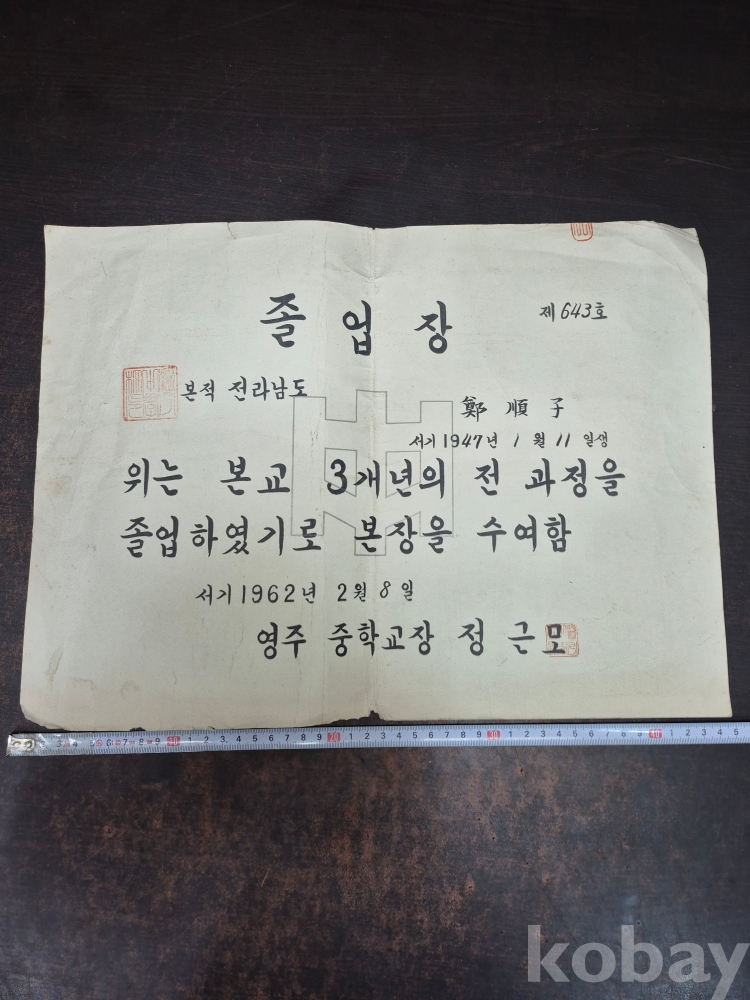 졸업장
제643호
본적 전라남도
鄭順子
서기1947년 1월 11일생
위는 본교 3개년의 전 과정을
졸업하였기로 본장을 수여함
서기1962년 2월 8일
영주 중학교장 정근모
kobay